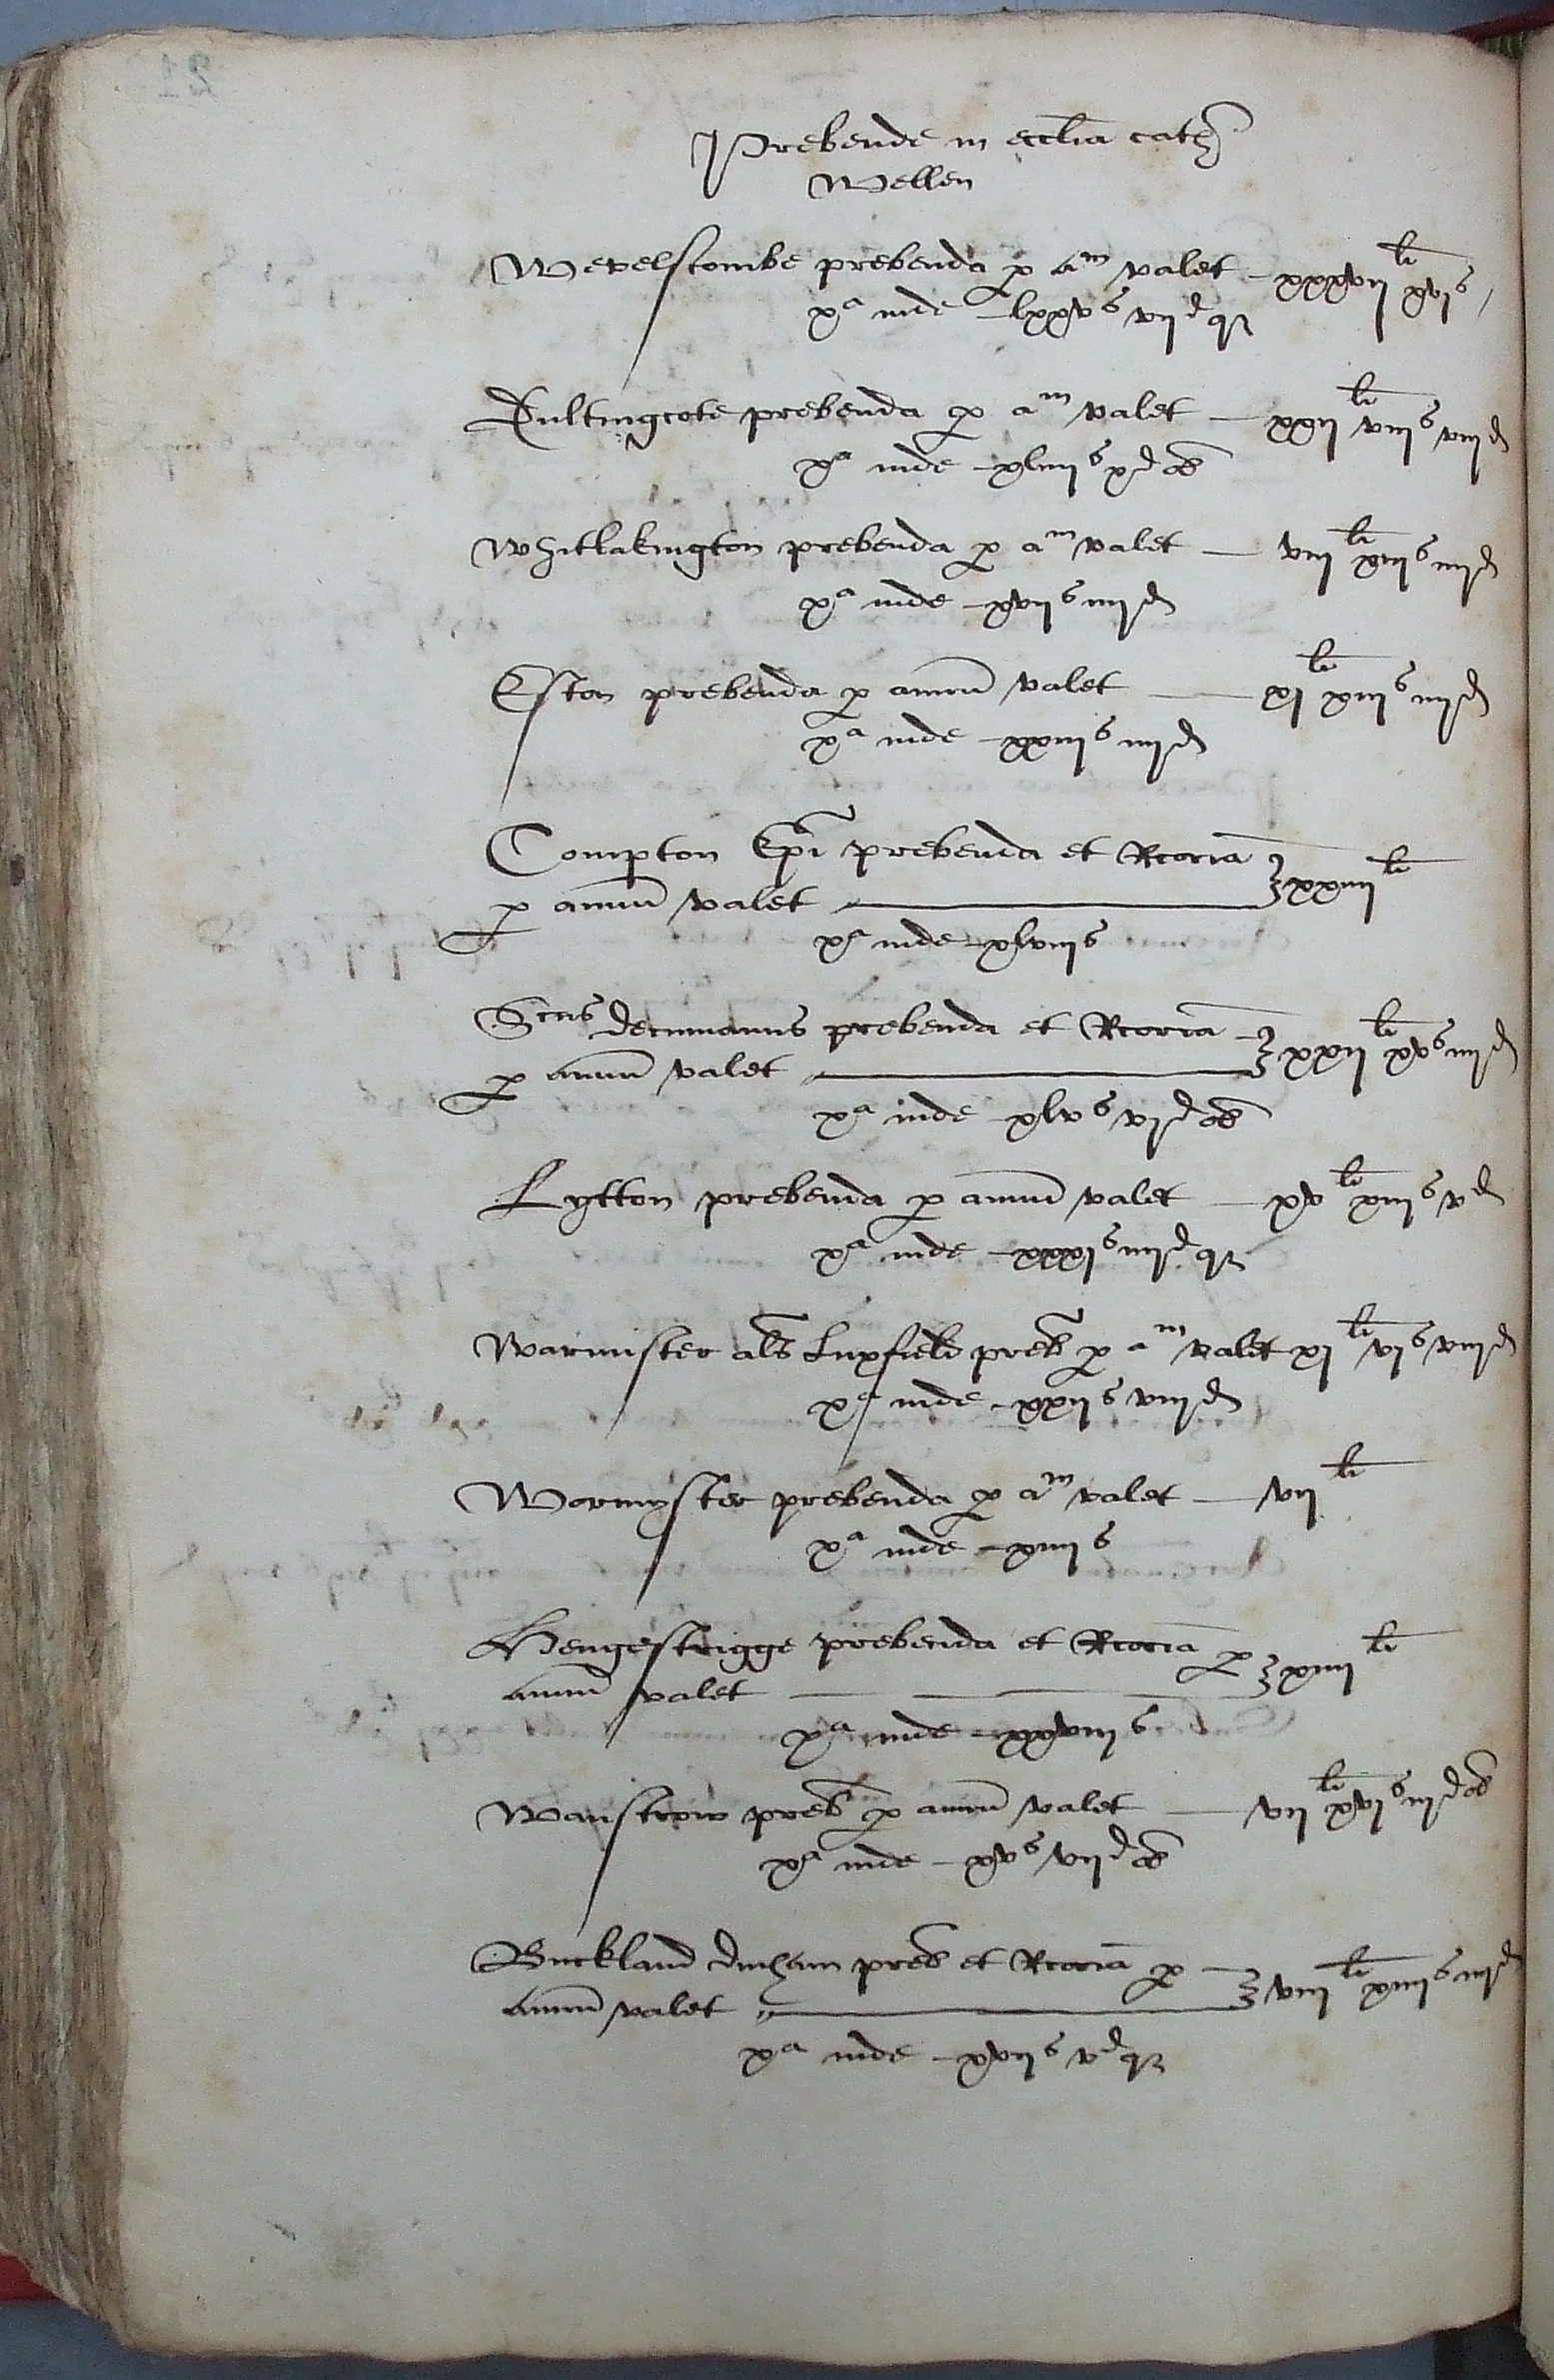 Prebende in eccl̄ia cath
Wellen
Wevelscombe prebenda p aᵐ valet – xxxvij li xvjˢ
xᵃ inde – lxxvˢ vijᵈ qᵃ
Dultingcote prebenda p aᵐ valet – xxij li viijˢ viijᵈ
xᵃ inde – xliiijˢ xᵈ ob
Whitlakington prebenda p aᵐ valet – viij li xiijˢ iiijᵈ
xᵃ inde – xvijˢ iiijᵈ
Eston prebenda p annū valet – xj li xiijˢ iiijᵈ
xᵃ inde – xxiijˢ iiijᵈ
Compton Ep̄i prebenda et Rcoria
p annū valet – xxiiij li
xᵃ inde – xlviijˢ
Scūs decumanus prebenda et Rcoria
p annū valet – xxij li xvˢ iiijᵈ
xᵃ inde – xlvˢ vjᵈ ob
Lytton prebenda p annū valet – xv li xiijˢ vᵈ
xᵃ inde – xxxjˢ iiijᵈ qᵃ
Warmister al̄s Luxfield preb p aᵐ valet xj li vjˢ viijᵈ
xᵃ inde – xxijˢ viijᵈ
Wormyster prebenda p aᵐ valet – vij li
xᵃ inde – xiiijˢ
Hengestrigge prebenda et Rcoria p
annū valet – xiiij li
xᵃ inde – xxviijˢ
Wanstrow preb p annū valet – vij li xvjˢ iijᵈ ob
xᵃ inde – xvˢ vijᵈ ob
Buckland dinham preb et Rcoria p
annū valet – viij li xiiijˢ iijᵈ
xᵃ inde – xvijˢ vᵈ qᵃ